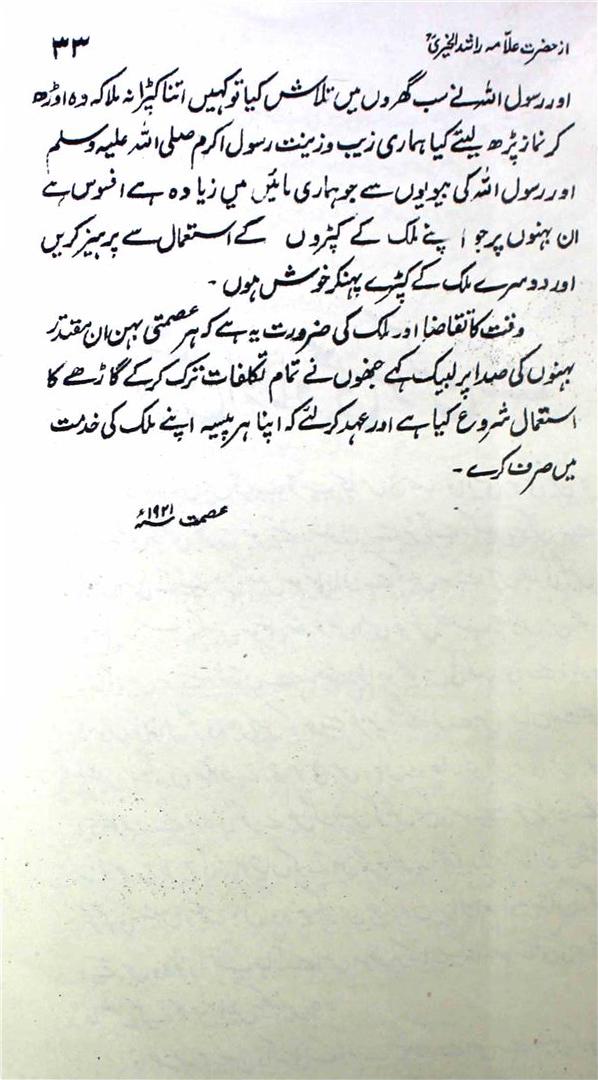 از حضرت علامہ راشد الخیریؒ ۳۳
اور رسول اللہ نے سب گھروں میں تلاش کیا تو کہیں اتنا کپڑا نہ ملا کہ وہ اوڑھ
کر نماز پڑھ لیتے کیا ہماری زیب و زینت رسول اکرم صلی اللہ علیہ وسلم
اور رسول اللہ کی بیویوں سے جو ہماری مائیں ہیں زیادہ ہے افسوس ہے
ان بہنوں پر جو اپنے ملک کے کپڑوں کے استعمال سے پرہیز کریں
اور دوسرے ملک کے کپڑے پہنکر خوش ہوں ۔
وقت کا تقاضا اور ملک کی ضرورت یہ ہے کہ ہر عصمتی بہن ان مقتدر
بہنوں کی صدا پر لبیک کہے جنھوں نے تمام تکلفات ترک کرکے گاڑھے کا
استعمال شروع کیا ہے اور عہد کر لئے کہ اپنا ہر پیسہ اپنے ملک کی خدمت
میں صرف کرے ۔
عصمت ۱۹۲۱ء